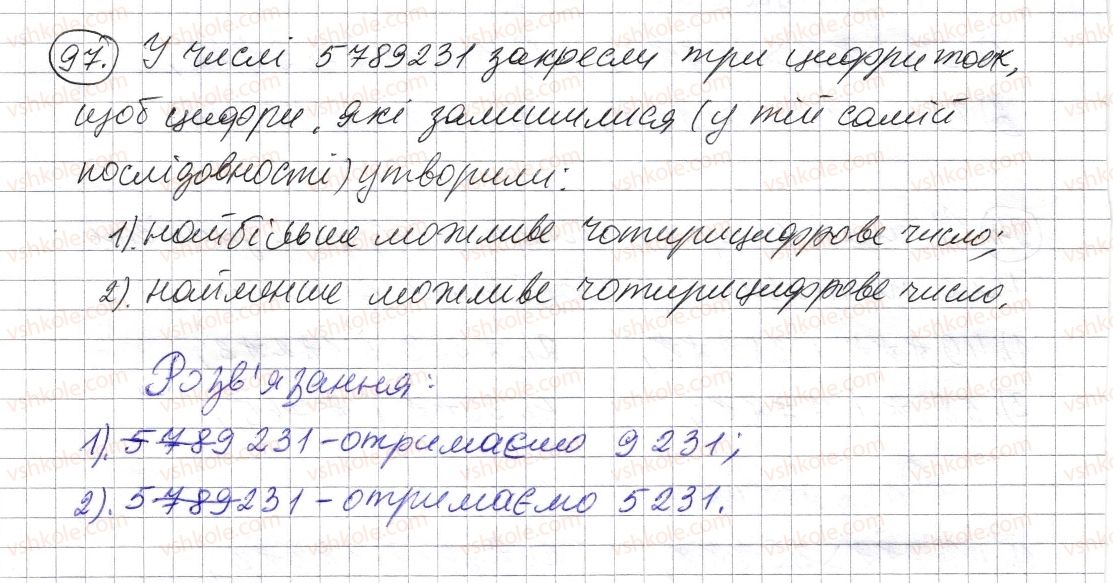 97. У числі 5789231 закресли три цифри так,
щоб цифри, які залишилися (у тій самій
послідовності) утворили:
1). найбільше можливе чотирицифрове число;
2). найменше можливе чотирицифрове число.
Розв'язання:
1). 5789231 - отримаємо 9231;
2). 5789231 - отримаємо 5231.